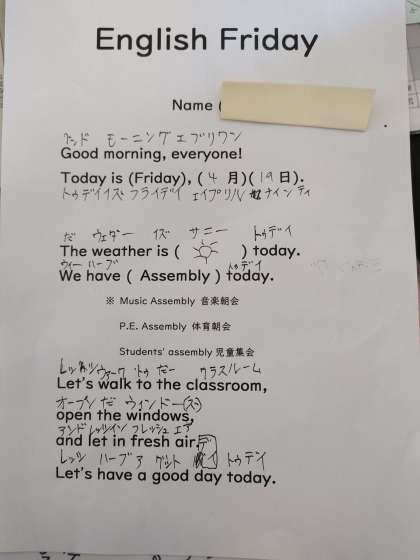 English Friday
Name (
グッド モーニング エブリワン
Good morning, everyone!
Today is (Friday), (4月)(19日).
トゥデイイズ フライデイ エイプリル ナインティ
だ ウェダー イズ サニー トゥデイ
The weather is ( ) today.
ウィー ハーブ トゥデイ
We have ( Assembly ) today.
※ Music Assembly 音楽朝会
P.E. Assembly 体育朝会
Students' assembly 児童集会
レッツ ウォーク トゥ だー クラスルーム
Let's walk to the classroom,
オープン だ ウィンドー(ズ)
open the windows,
アンド レッツイン フレッシュ エア
and let in fresh air.
レッツ ハーブ ア グット デイ トゥデイ
Let's have a good day today.